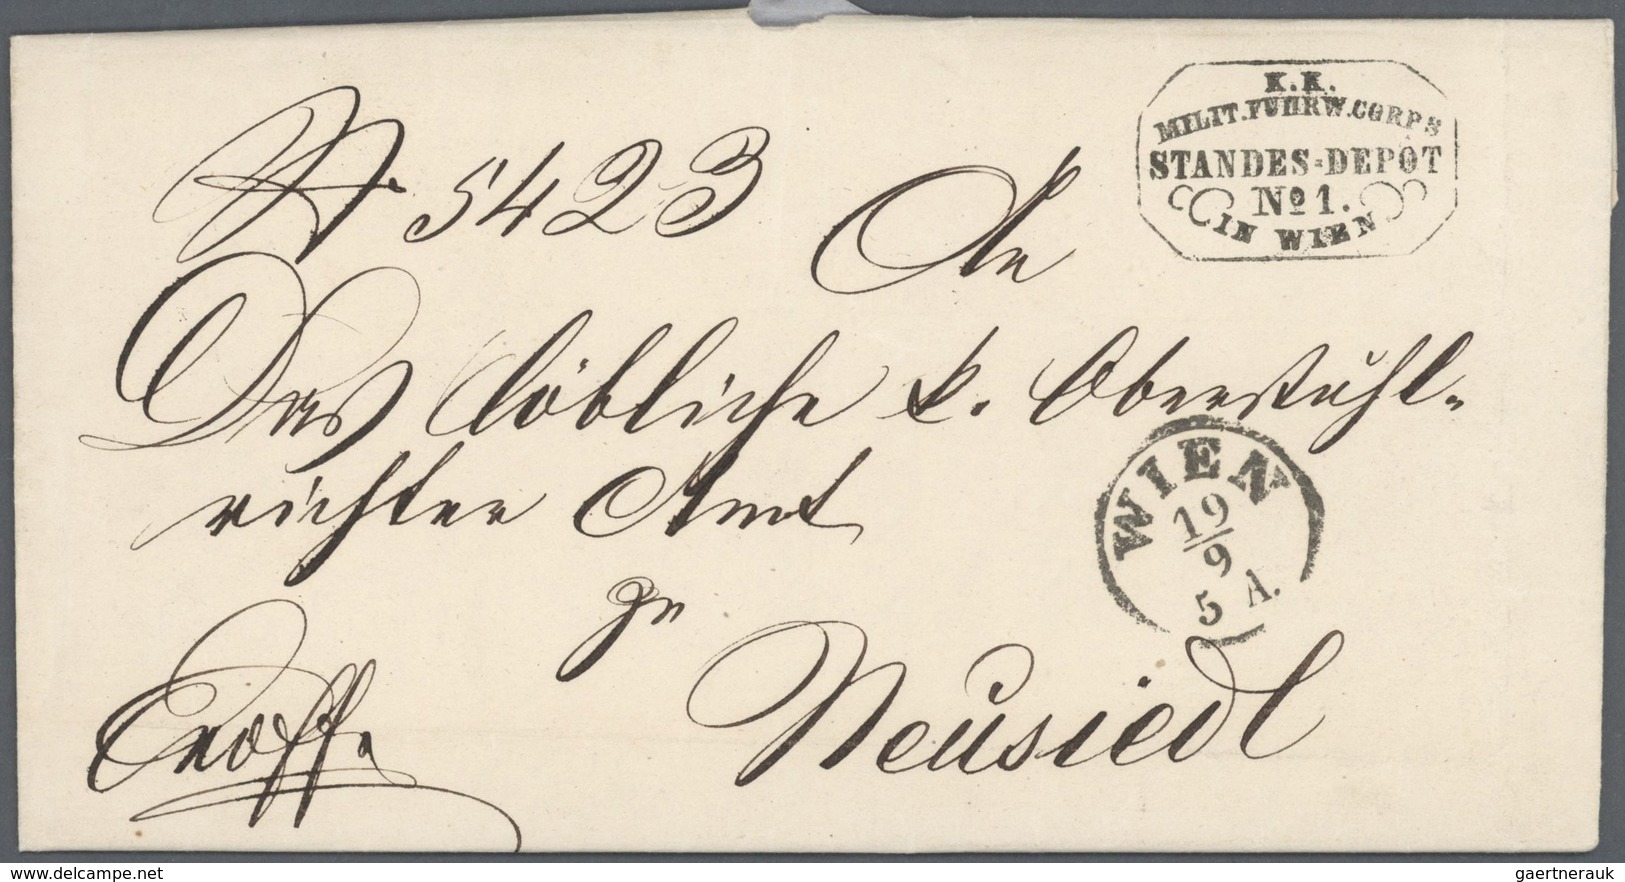 K.K.
MILIT.FUHRW.CORPS
STANDES=DEPÔT
Nº 1.
IN WIEN
N. 5423
An
Das löbliche k. Oberstuhl-
richter Amt
WIEN
19
9
5 A.
zu
Neusiedl
delcampe.net
gaertnerauk